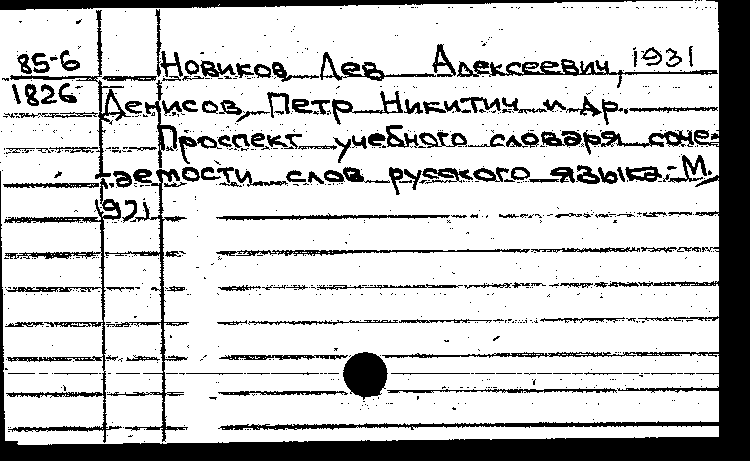 85-6
1826
Новиков Лев Алексеевич, 1931
Денисов, Петр Никитич и др.
Проспект учебного словаря соче-
таемости слов русского языка.-М.
1971